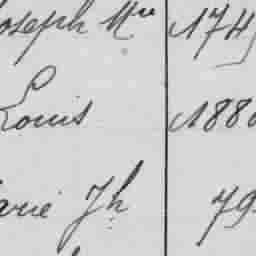 Joseph Mre 174
Louis 188
Marie Jh 79